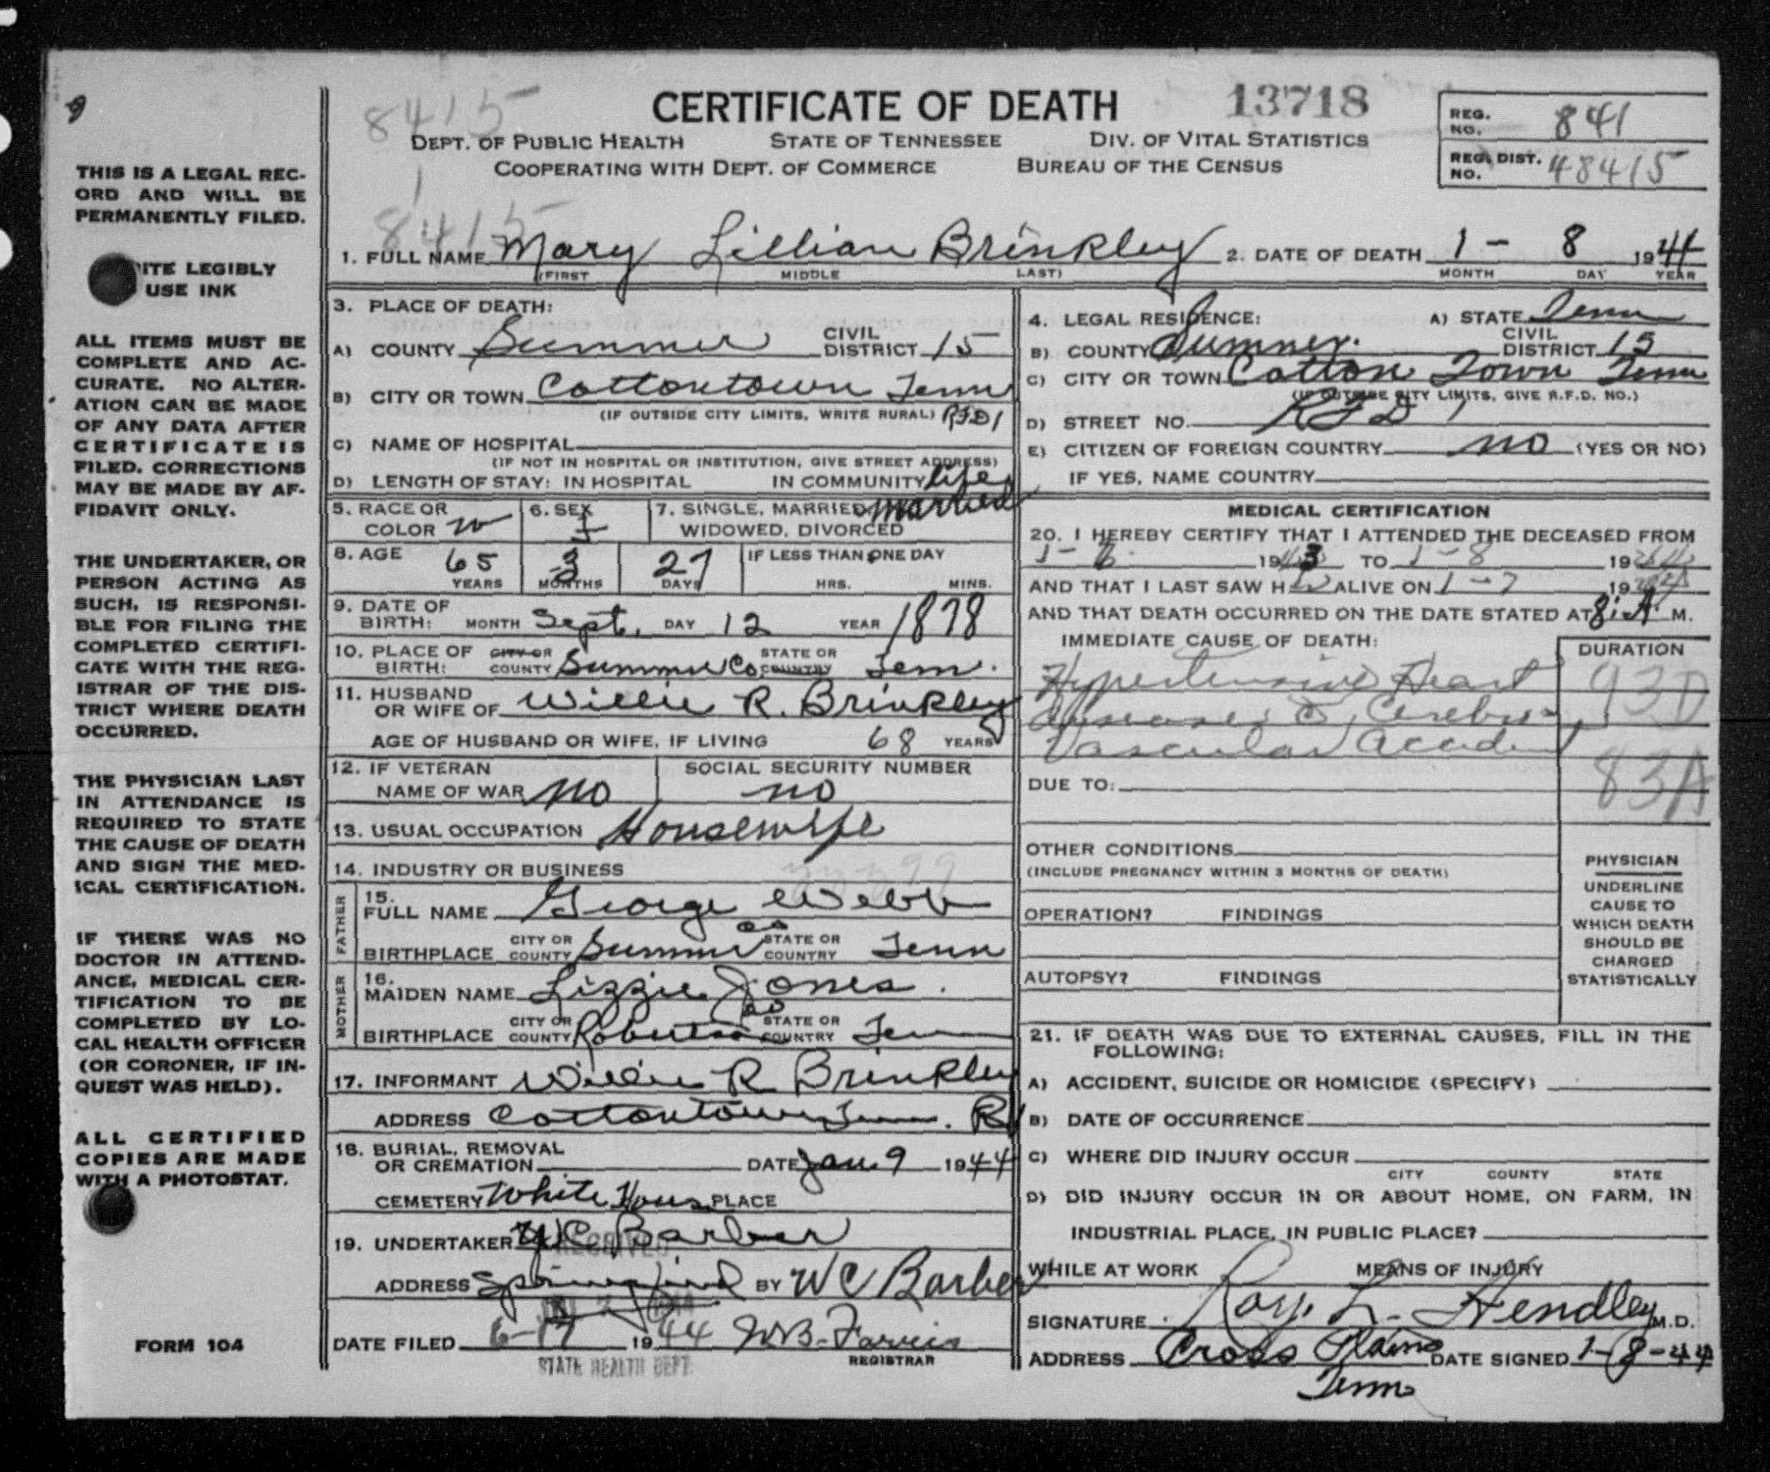 8415
CERTIFICATE OF DEATH 13718
DEPT. OF PUBLIC HEALTH STATE OF TENNESSEE DIV. OF VITAL STATISTICS
COOPERATING WITH DEPT. OF COMMERCE BUREAU OF THE CENSUS
REG. NO. 841
REG. DIST. NO. 48415
1
8415
THIS IS A LEGAL REC-
ORD AND WILL BE
PERMANENTLY FILED.
ITE LEGIBLY
USE INK
ALL ITEMS MUST BE
COMPLETE AND AC-
CURATE. NO ALTER-
ATION CAN BE MADE
OF ANY DATA AFTER
CERTIFICATE IS
FILED. CORRECTIONS
MAY BE MADE BY AF-
FIDAVIT ONLY.
THE UNDERTAKER, OR
PERSON ACTING AS
SUCH, IS RESPONSI-
BLE FOR FILING THE
COMPLETED CERTIFI-
CATE WITH THE REG-
ISTRAR OF THE DIS-
TRICT WHERE DEATH
OCCURRED.
THE PHYSICIAN LAST
IN ATTENDANCE IS
REQUIRED TO STATE
THE CAUSE OF DEATH
AND SIGN THE MED-
ICAL CERTIFICATION.
IF THERE WAS NO
DOCTOR IN ATTEND-
ANCE, MEDICAL CER-
TIFICATION TO BE
COMPLETED BY LO-
CAL HEALTH OFFICER
(OR CORONER, IF IN-
QUEST WAS HELD).
ALL CERTIFIED
COPIES ARE MADE
WITH A PHOTOSTAT.
FORM 104
1. FULL NAME Mary Lillian Brinkley 2. DATE OF DEATH 1 - 8 1944
(FIRST MIDDLE LAST) MONTH DAY YEAR
3. PLACE OF DEATH:
A) COUNTY Sumner CIVIL DISTRICT 15
B) CITY OR TOWN Cottontown Tenn
(IF OUTSIDE CITY LIMITS, WRITE RURAL) RFD 1
C) NAME OF HOSPITAL
(IF NOT IN HOSPITAL OR INSTITUTION, GIVE STREET ADDRESS)
D) LENGTH OF STAY: IN HOSPITAL IN COMMUNITY life
5. RACE OR COLOR W 6. SEX F 7. SINGLE, MARRIED, WIDOWED, DIVORCED married
8. AGE 65 YEARS 3 MONTHS 27 DAYS IF LESS THAN ONE DAY HRS. MINS.
9. DATE OF BIRTH: MONTH Sept. DAY 12 YEAR 1878
10. PLACE OF BIRTH: CITY OR COUNTY Sumner Co. STATE OR COUNTRY Tenn.
11. HUSBAND OR WIFE OF Willie R. Brinkley
AGE OF HUSBAND OR WIFE, IF LIVING 68 YEARS
12. IF VETERAN NAME OF WAR no SOCIAL SECURITY NUMBER no
13. USUAL OCCUPATION Housewife
14. INDUSTRY OR BUSINESS
FATHER
15. FULL NAME George Webb
BIRTHPLACE CITY OR COUNTY Sumner co STATE OR COUNTRY Tenn
MOTHER
16. MAIDEN NAME Lizzie Jones.
BIRTHPLACE CITY OR COUNTY Robertson co STATE OR COUNTRY Tenn
17. INFORMANT Willie R Brinkley
ADDRESS Cottontown Tenn. R1
18. BURIAL, REMOVAL OR CREMATION DATE Jan. 9 1944
CEMETERY White House PLACE
19. UNDERTAKER W C Barber
RECEIVED
ADDRESS Springfield BY W C Barber
DATE FILED 6-17 1944 W.B. Farris
REGISTRAR
STATE HEALTH DEPT.
4. LEGAL RESIDENCE: A) STATE Tenn
B) COUNTY Sumner. CIVIL DISTRICT 15
C) CITY OR TOWN Cotton Town Tenn
(IF OUTSIDE CITY LIMITS, GIVE R.F.D. NO.)
D) STREET NO. RFD 1
E) CITIZEN OF FOREIGN COUNTRY no (YES OR NO)
IF YES, NAME COUNTRY
MEDICAL CERTIFICATION
20. I HEREBY CERTIFY THAT I ATTENDED THE DECEASED FROM
19 TO 1-8 19
AND THAT I LAST SAW H ALIVE ON 1-7 19
AND THAT DEATH OCCURRED ON THE DATE STATED AT 8: A. M.
IMMEDIATE CAUSE OF DEATH:
DURATION
Hypertensive Heart 93D
disease c Cerebro-
Vascular accident
83A
DUE TO:
OTHER CONDITIONS
(INCLUDE PREGNANCY WITHIN 3 MONTHS OF DEATH)
OPERATION? FINDINGS
AUTOPSY? FINDINGS
PHYSICIAN
UNDERLINE
CAUSE TO
WHICH DEATH
SHOULD BE
CHARGED
STATISTICALLY
21. IF DEATH WAS DUE TO EXTERNAL CAUSES, FILL IN THE
FOLLOWING:
A) ACCIDENT, SUICIDE OR HOMICIDE (SPECIFY)
B) DATE OF OCCURRENCE
C) WHERE DID INJURY OCCUR
CITY COUNTY STATE
D) DID INJURY OCCUR IN OR ABOUT HOME, ON FARM, IN
INDUSTRIAL PLACE, IN PUBLIC PLACE?
WHILE AT WORK MEANS OF INJURY
SIGNATURE Roy L. Hendley M.D.
ADDRESS Cross Plains DATE SIGNED 1-8-44
Tenn